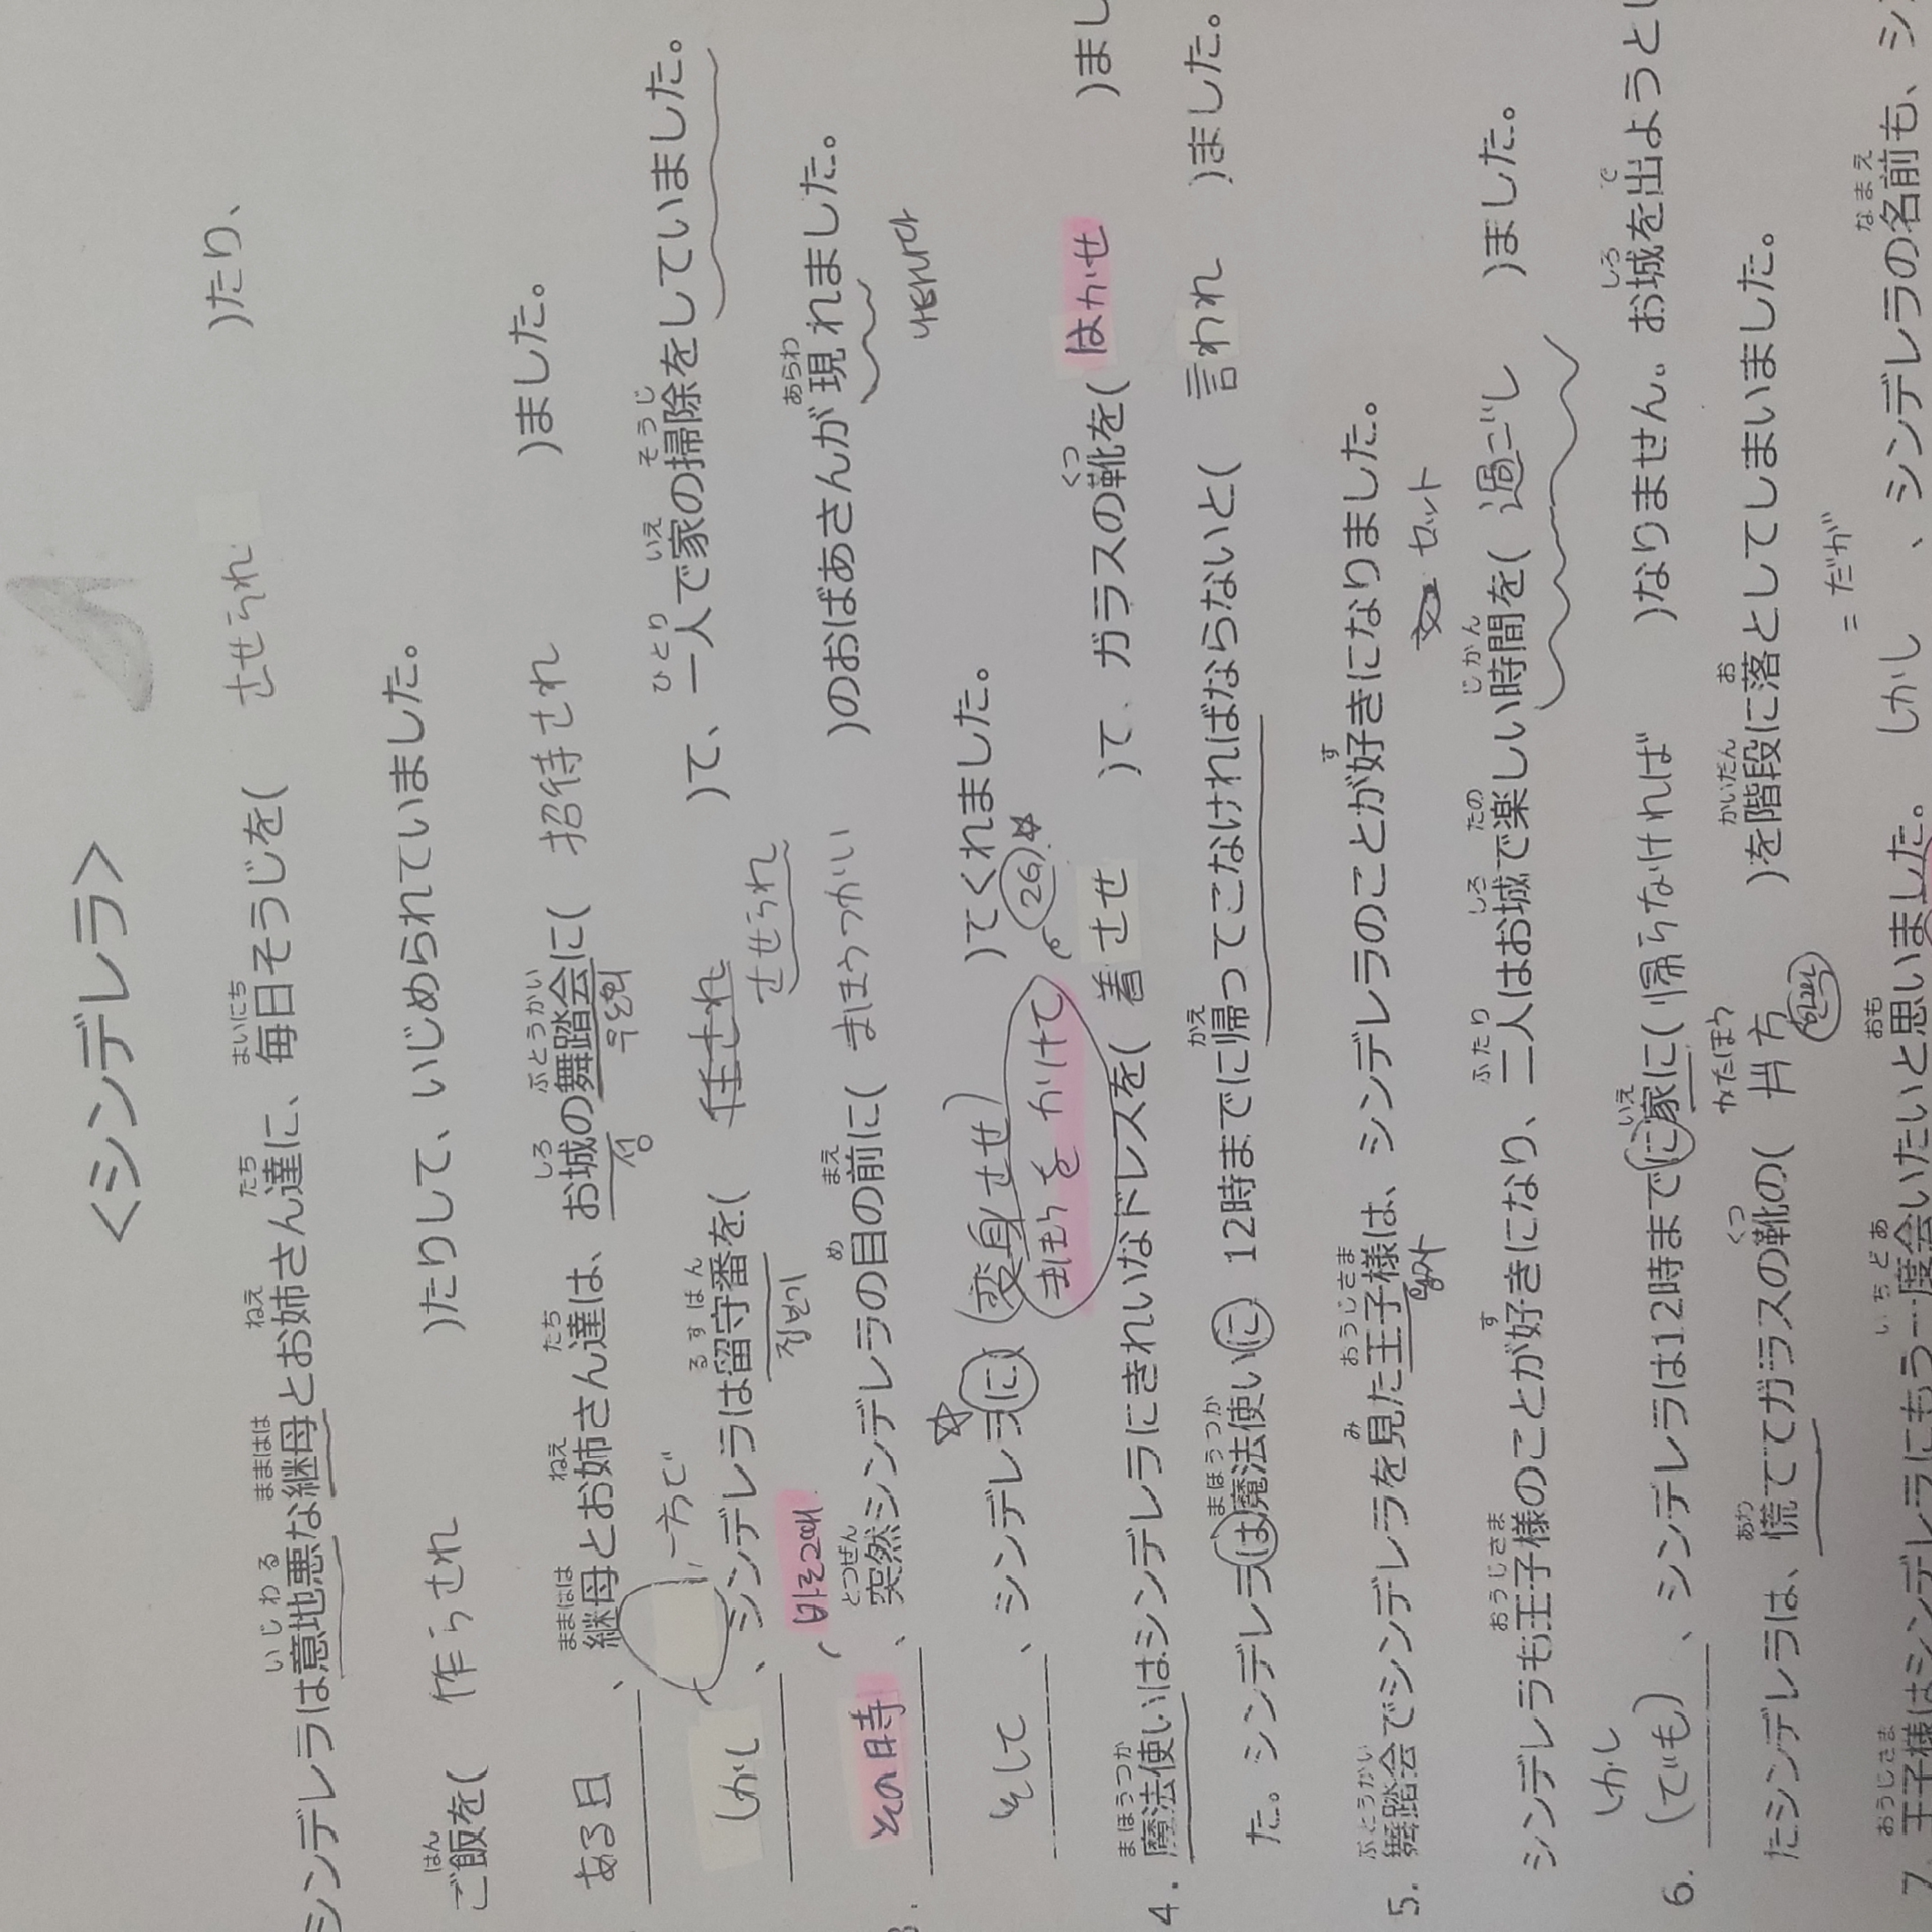 <シンデレラ>
シンデレラは意地悪な継母とお姉さん達に、毎日そうじを( させられ )たり、
ご飯を( 作らされ )たりして、いじめられていました。
ある日、継母とお姉さん達は、お城の舞踏会に( 招待され )ました。
성 무도회
一方で
しかし、シンデレラは留守番を( 任され )て、一人で家の掃除をしていました。
집보기 させられ
바로그때
その時、突然シンデレラの目の前に( まほうつかい )のおばあさんが現れました。
나타나다
そして、シンデレラに(変身させ)てくれました。
まほうをかけて 26
4. 魔法使いはシンデレラにきれいなドレスを( 着させ )て、ガラスの靴を( はかせ )まし
た。シンデレラは魔法使いに12時までに帰ってこなければならないと( 言われ )ました。
5. 舞踏会でシンデレラを見た王子様は、シンデレラのことが好きになりました。
왕자
シンデレラも王子様のことが好きになり、二人はお城で楽しい時間を( 過ごし )ました。
しかし
6. (でも)、シンデレラは12時までに家に( 帰らなければ )なりません。お城を出ようとし
たシンデレラは、慌ててガラスの靴の( 片方 )を階段に落としてしまいました。
かたほう 한짝
= だが
7. 王子様はシンデレラにもう一度会いたいと思いました。しかし、シンデレラの名前も、シ